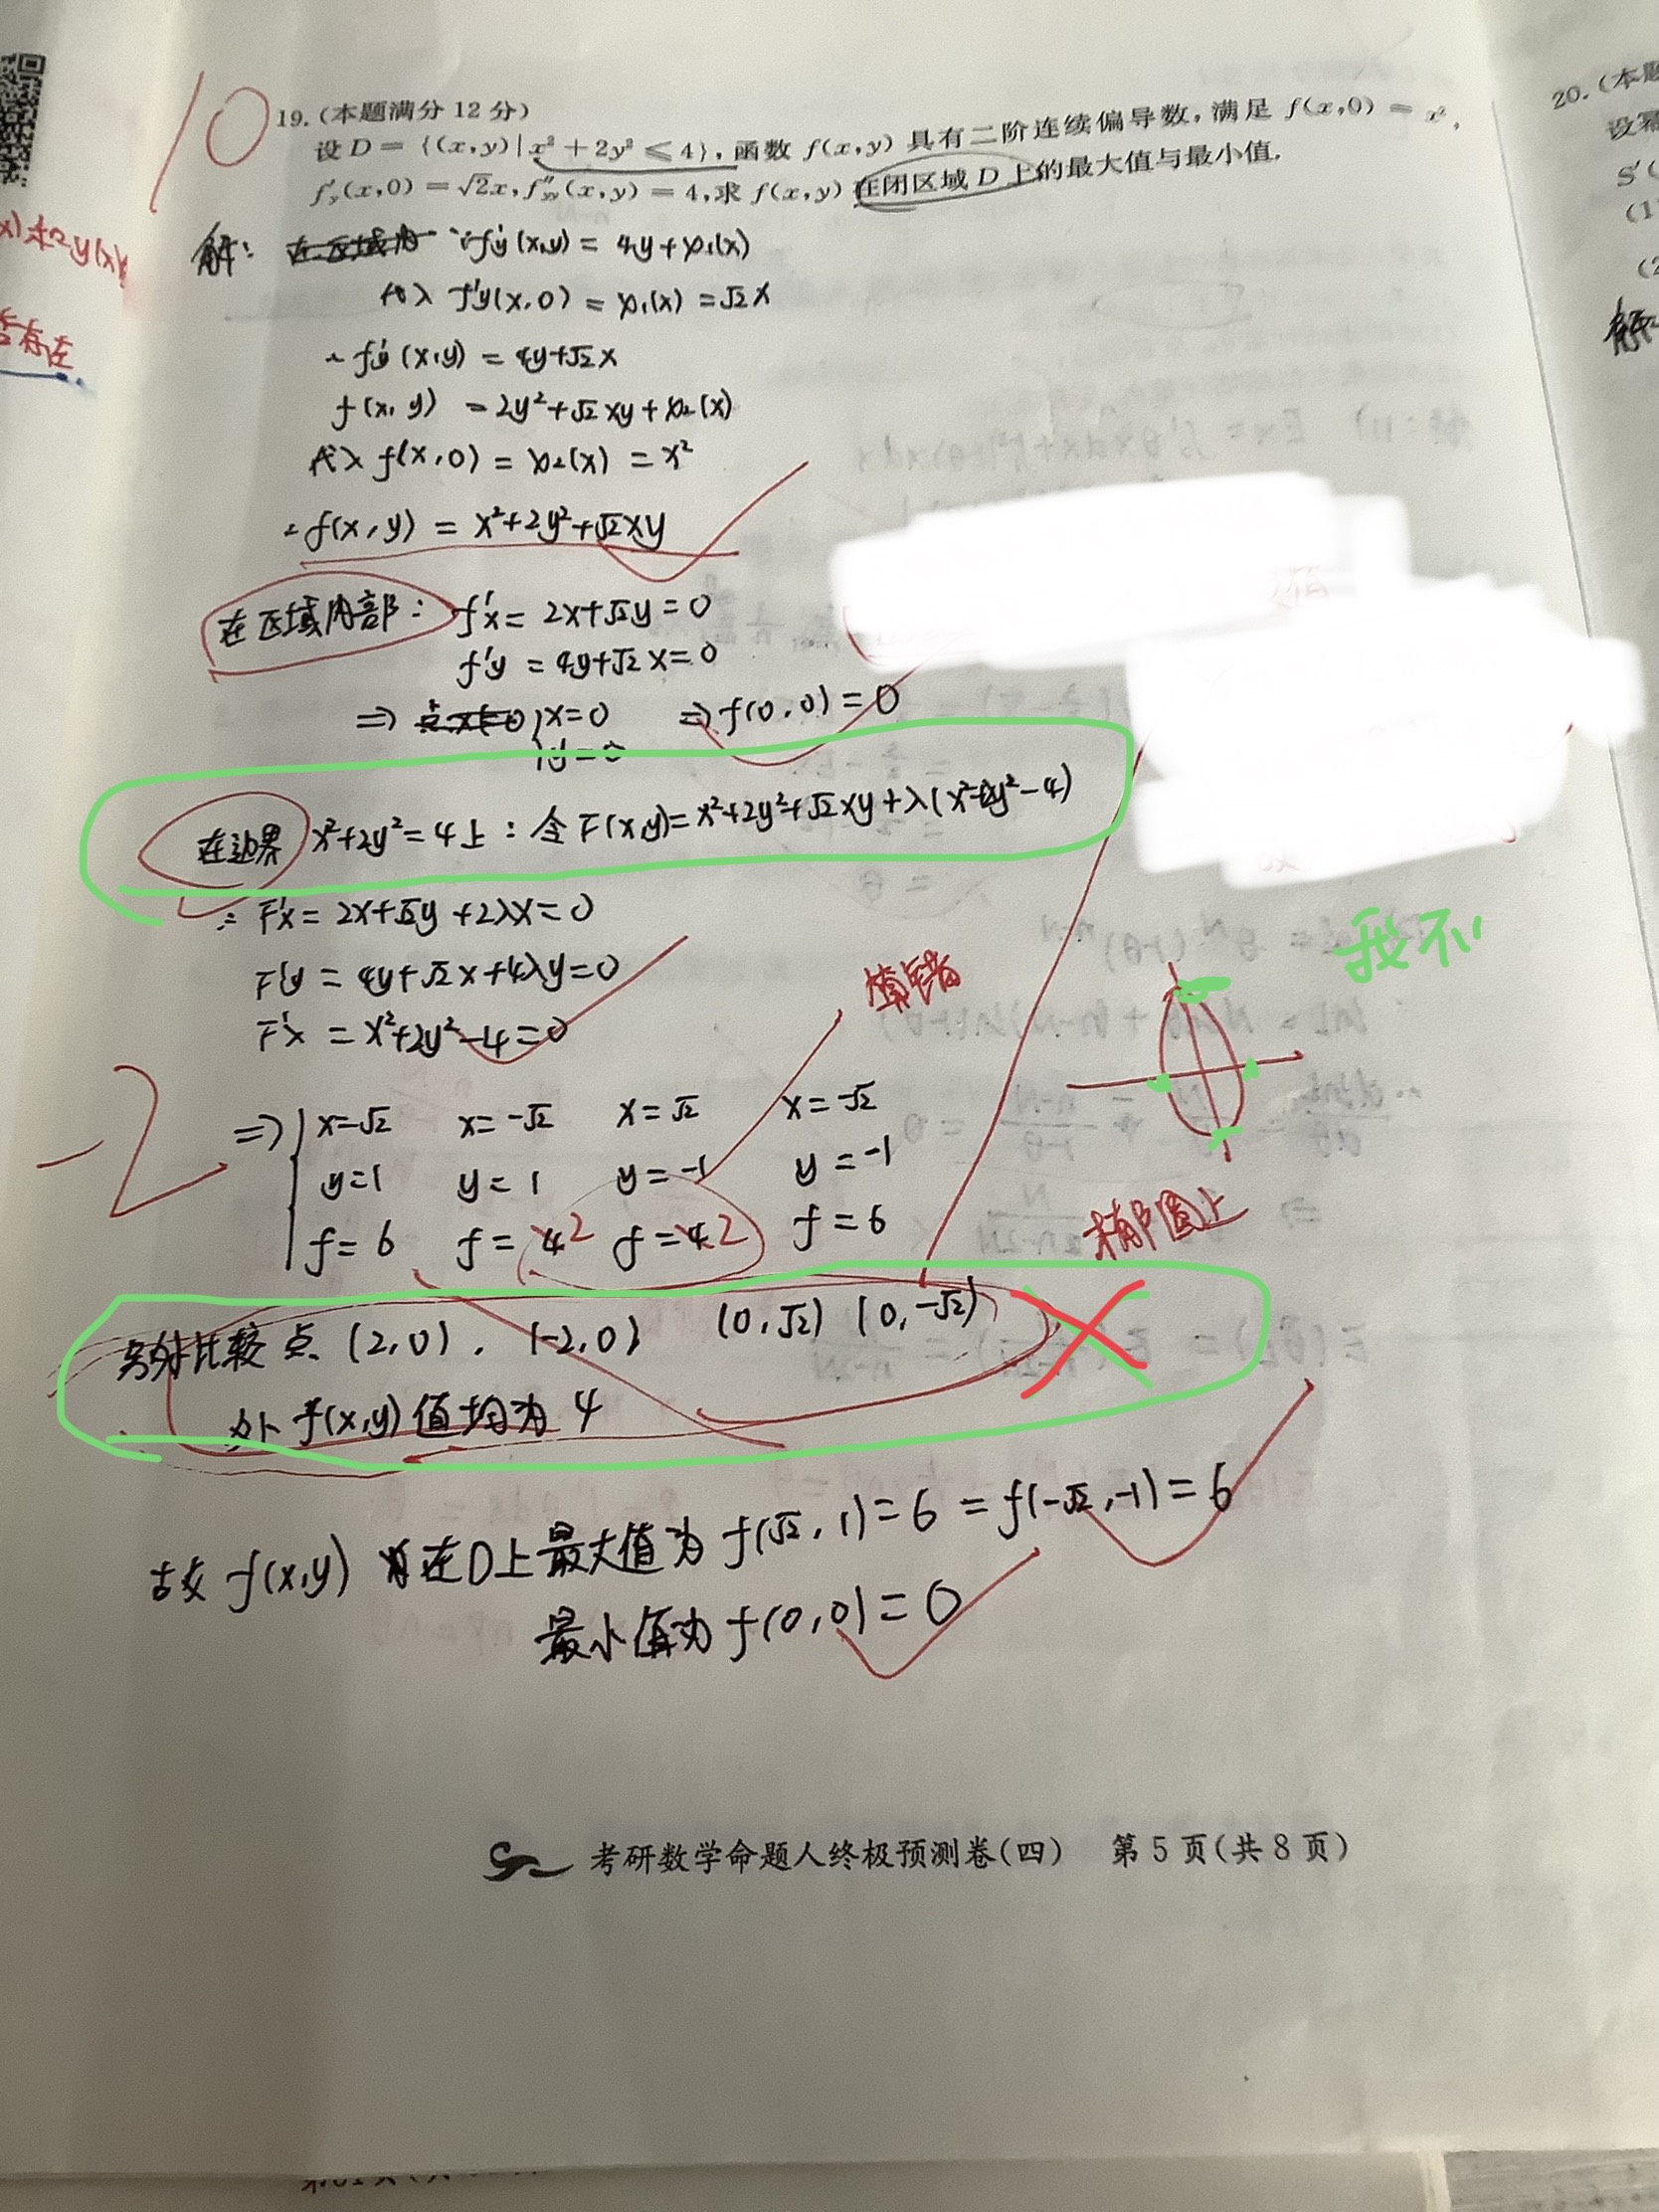 10
19.(本题满分 12 分)
设 D = {(x,y)|x²+2y²≤4},函数 f(x,y) 具有二阶连续偏导数,满足 f(x,0) = x²,
f′y(x,0) = √2x,f″yy(x,y) = 4,求 f(x,y) 在闭区域 D 上的最大值与最小值.
20.(本题
设幂
S′(
(1
(2
解
x)未2y(x)
否存在
解: ∵f'y(x,y) = 4y+φ₁(x)
代入 f'y(x,0) = φ₁(x) = √2x
∴ f'y(x,y) = 4y+√2x
f(x,y) = 2y²+√2xy+φ₂(x)
代入 f(x,0) = φ₂(x) = x²
∴ f(x,y) = x²+2y²+√2xy
在区域内部: f'x = 2x+√2y=0
f'y = 4y+√2x=0
⇒ {x=0 ⇒ f(0,0)=0
y=0
在边界 x²+2y²=4上: 令F(x,y)=x²+2y²+√2xy+λ(x²+2y²-4)
∴ F'x = 2x+√2y+2λx=0
F'y = 4y+√2x+4λy=0
F'x = x²+2y²-4=0
我不
算错
-2
⇒ { x=√2 x=-√2 x=√2 x=-√2
y=1 y=1 y=-1 y=-1
f=6 f=42 f=42 f=6
椭圆上
另外比较点 (2,0), (-2,0) (0,√2) (0,-√2)
外 f(x,y)值均为 4
故 f(x,y) 在D上最大值为 f(√2,1)=6=f(-√2,-1)=6
最小值为 f(0,0)=0
考研数学命题人终极预测卷(四) 第 5 页(共 8 页)